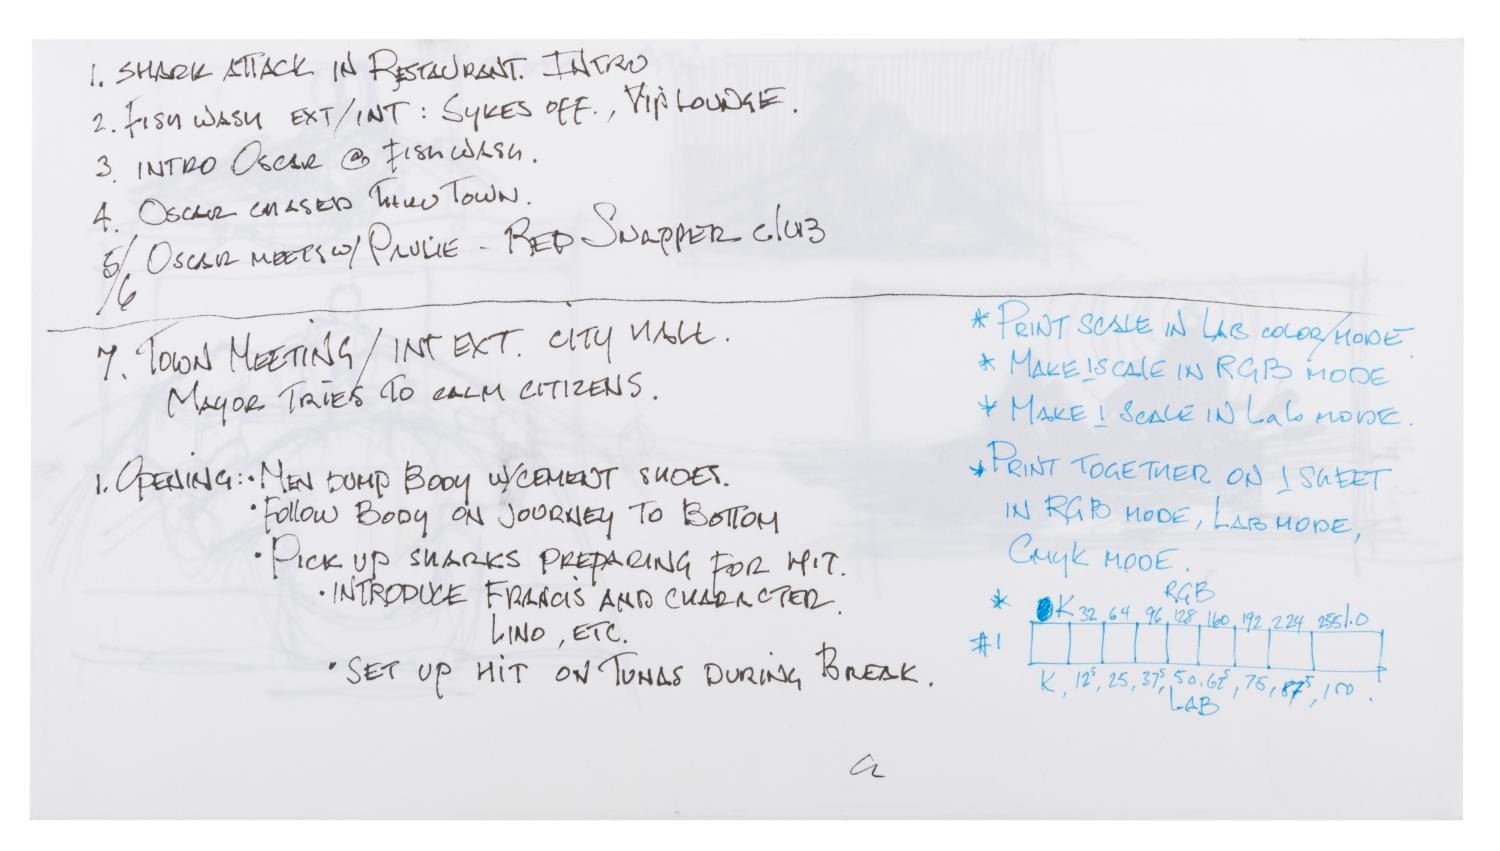 1. SHARK ATTACK IN RESTAURANT. INTRO
2. FISH WASH EXT/INT : SYKES OFF., VIP LOUNGE.
3. INTRO OSCAR @ FISHWASH.
4. OSCAR CHASED THRU TOWN.
5/6 OSCAR MEETS W/ - RED SNAPPER CLUB
7. TOWN MEETING/INT EXT. CITY HALL.
MAYOR TRIES TO CALM CITIZENS.
1. OPENING: · MEN DUMP BODY W/CEMENT SHOES.
· FOLLOW BODY ON JOURNEY TO BOTTOM
· PICK UP SHARKS PREPARING FOR HIT.
· INTRODUCE FRANCIS AND CHARACTER.
LINO, ETC.
· SET UP HIT ON TUNAS DURING BREAK.
* PRINT SCALE IN LAB COLOR/MODE.
* MAKE 1 SCALE IN RGB MODE
* MAKE 1 SCALE IN LAB MODE.
* PRINT TOGETHER ON 1 SHEET
IN RGB MODE, LAB MODE,
CMYK MODE.
* RGB
K 32, 64, 96, 128, 160, 192, 224, 255 1.0
#1
K, 12⁵, 25, 37⁵, 50, 62⁵, 75, 87⁵, 100.
LAB